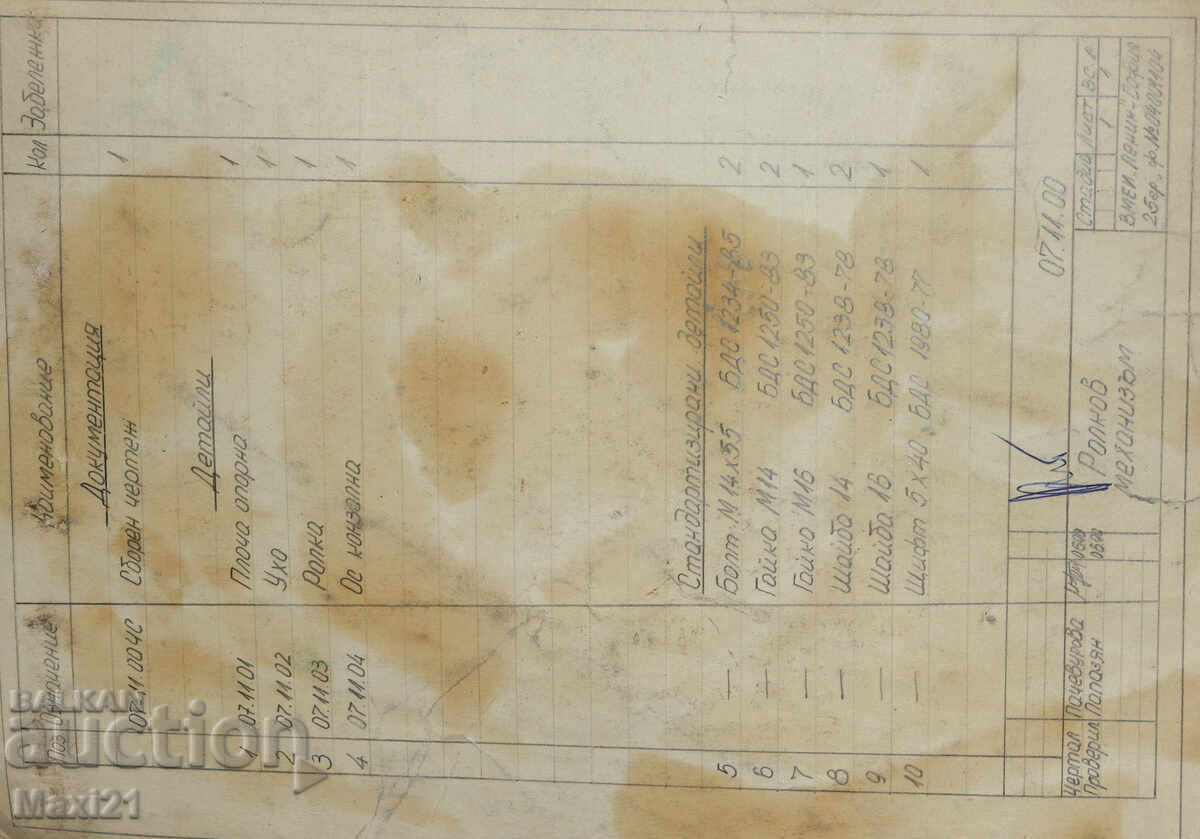 Поз. Означение Наименование Кол Забележка
Документация
07.11.00ЧС Сборен чертеж 1
Детайли
1 07.11.01 Плоча опорна 1
2 07.11.02 Ухо 1
3 07.11.03 Ролка 1
4 07.11.04 Ос конзолна 1
Стандартизирани детайли
5 — Болт М14х55 БДС 1234-85 2
6 — Гайка М14 БДС 1250-83 2
7 — Гайка М16 БДС 1250-83 1
8 — Шайба 14 БДС 1238-78 2
9 — Шайба 16 БДС 1238-78 1
10 — Щифт 5х40 БДС 1980-77 1
07.11.00
Чертал Пачевурова
Проверил Папазян
Ролков
механизъм
Стадий Лист
1
ВМЕИ „Ленин"-София
БАЛКАН
auction
Maxi21